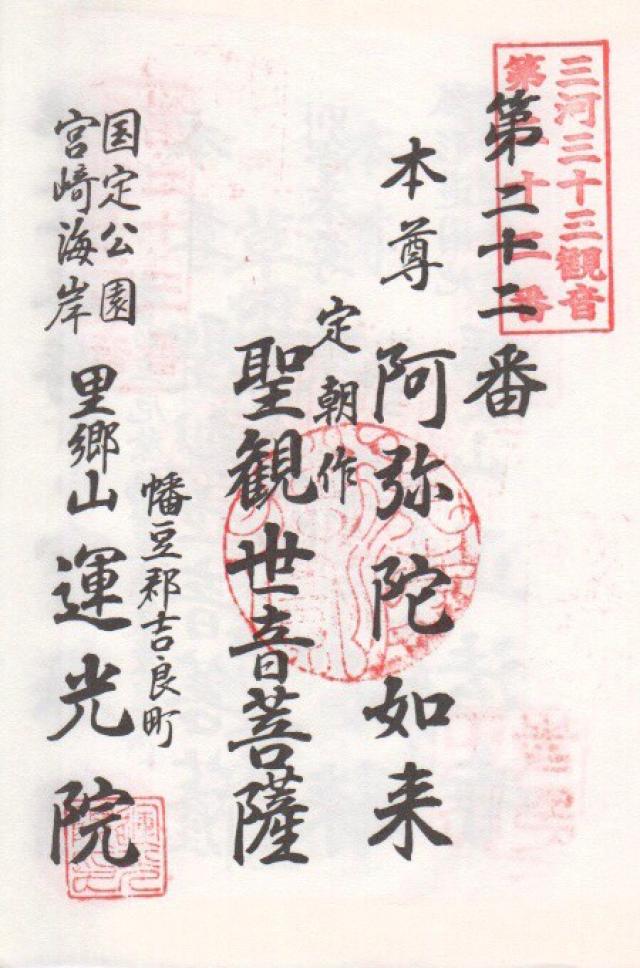 三河三十三観音
第二十二番
第二十二番
本尊 阿弥陀如来
定朝作
聖観世音菩薩
幡豆郡吉良町
国定公園
宮崎海岸
里郷山 運光院